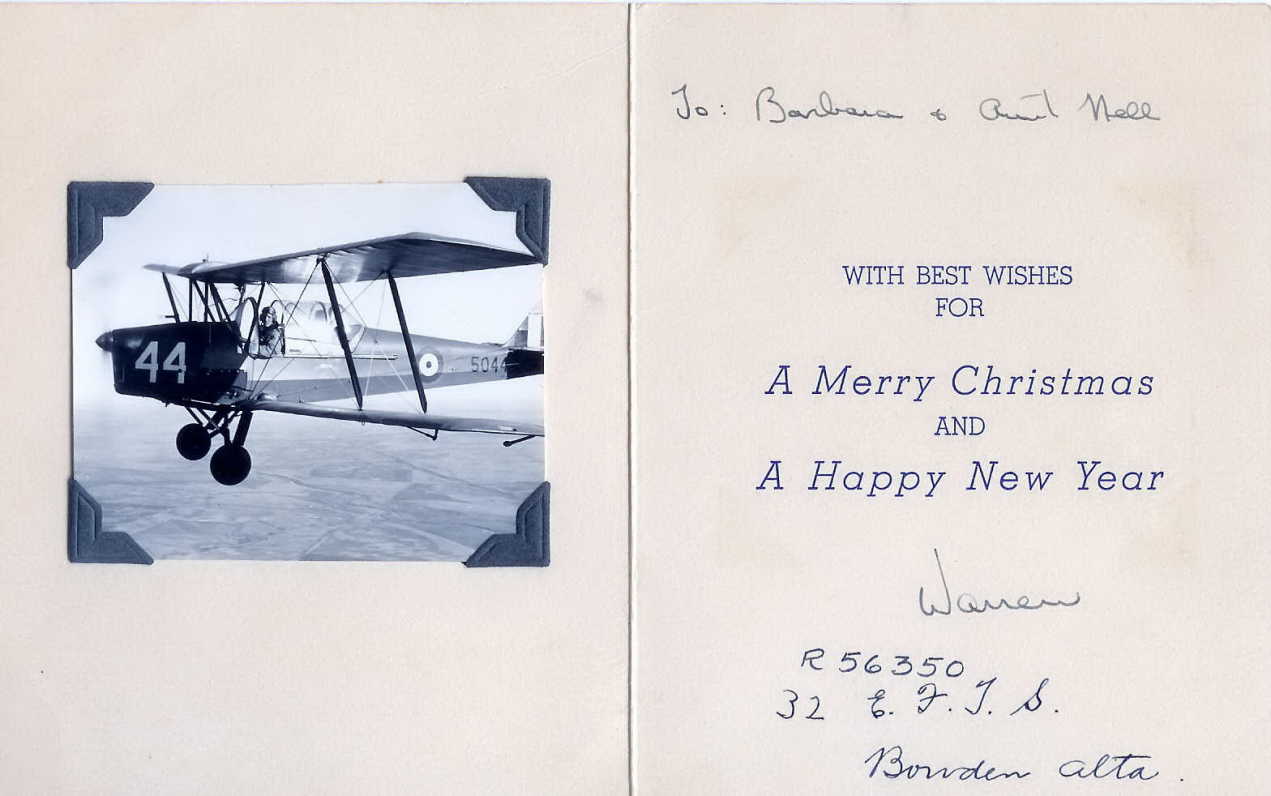 44
5044
To: Barbara & Aunt Nell
WITH BEST WISHES
FOR
A Merry Christmas
AND
A Happy New Year
Warren
R 56350
32 E. F. T. S.
Bowden Alta.